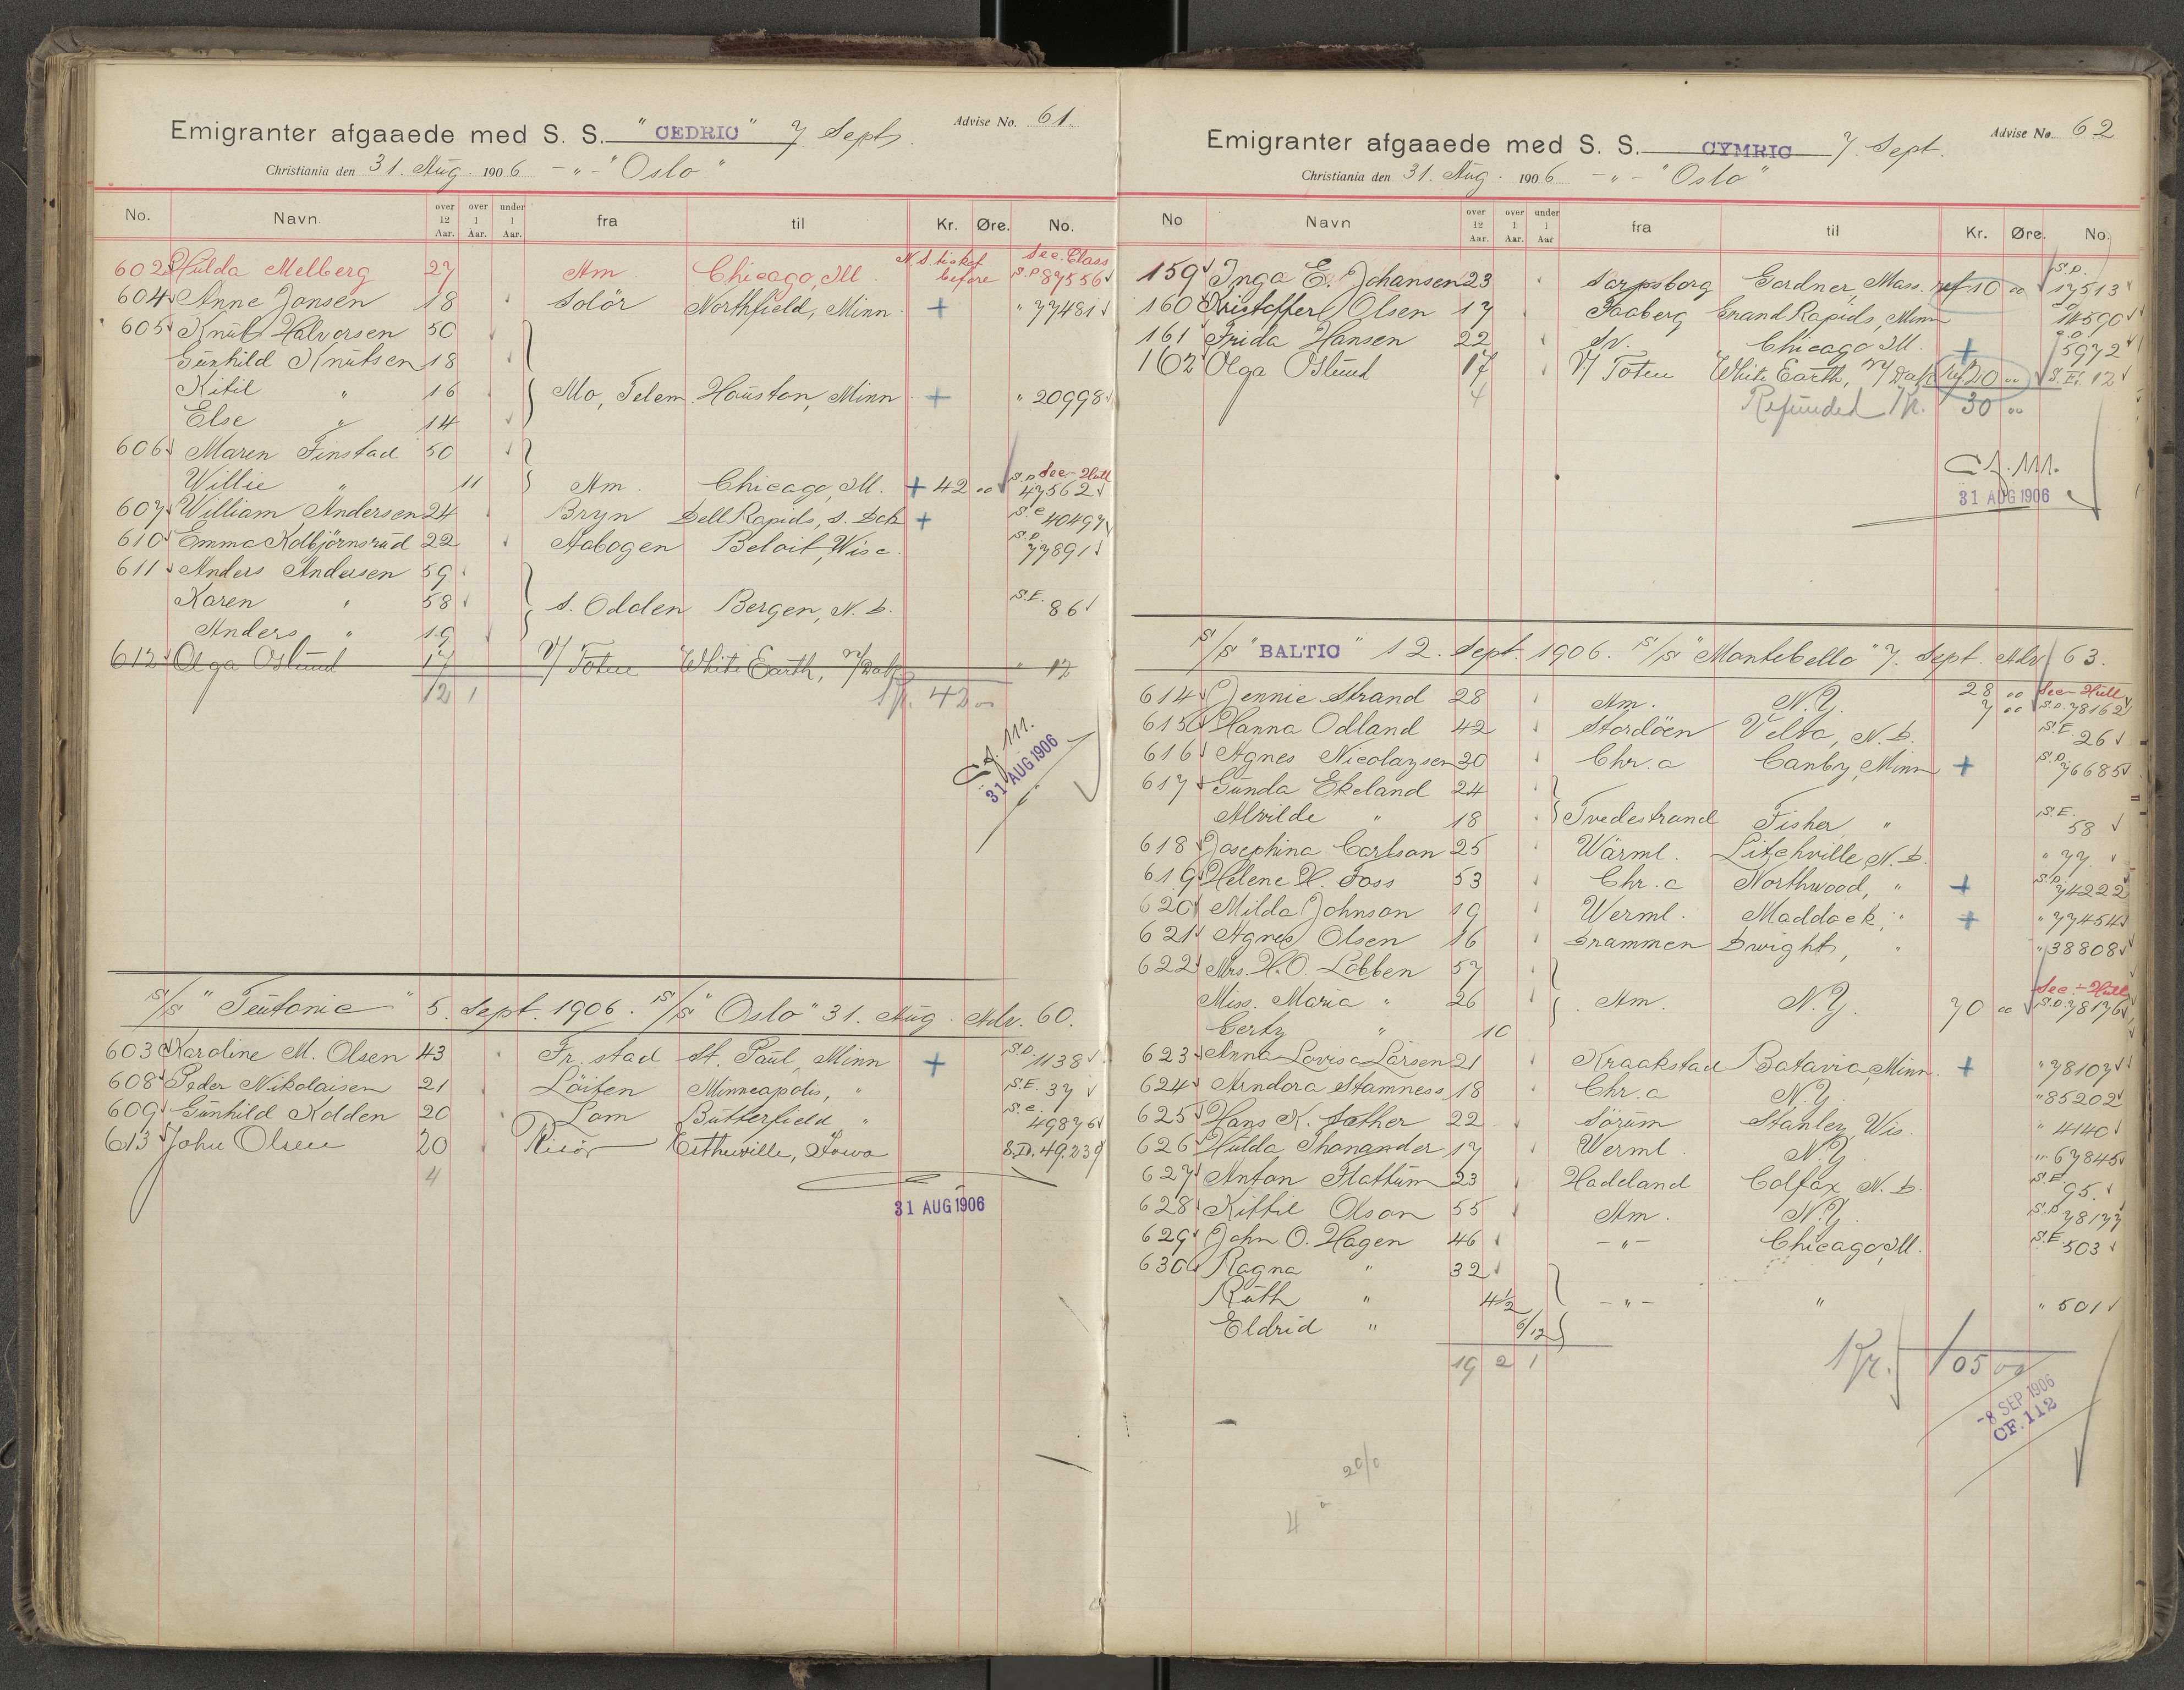 Emigranter afgaaede med S. S. "CEDRIC" 7 Sept. Advise No. 61.
Christiania den 31. Aug. 1906 -"- "Oslo"
No. Navn. over 12 Aar. over 1 Aar. under 1 Aar. fra til Kr. Øre. No.
602 Hulda Melberg 27 Am. Chicago, Ill N.S. before Sec. Class S.D. 87556
604 Anne Jansen 18 Solör Northfield, Minn. + " 77481
605 Knut Halvorsen 50
Gunhild Knutsen 18
Kitil " 16 Mo, Telem. Houston, Minn + " 20998
Else " 14
606 Maren Finstad 50
Willie " 11 Am. Chicago, Ill. + 42 00 S.D. Sec-Hull 47562
607 William Andersen 24 Bryn Dell Rapids, S. Dak + S.C. 40497
610 Emma Kolbjörnsrud 22 Aabogen Beloit, Wisc. S.D. 77891
611 Anders Andersen 59
Karen " 58 S. Odden Bergen, N. D. S.E. 86
Anders " 19
612 Olga Oslund 17 V/ Toten White Earth, N/Dak " 12
12 1 Kr. 42 00
C.F. 111.
31 AUG 1906
S/S "Teutonic" 5. Sept. 1906. S/S "Oslo" 31. Aug. Adv. 60.
603 Karoline M. Olsen 43 Fr.stad St. Paul, Minn + S.D. 1138
608 Peder Nikolaisen 21 Löiten Minneapolis, " S.E. 37
609 Gunhild Kolden 20 Lom Butterfield " S.C. 49876
613 John Olsen 20 Risör Estherville, Iowa S.D. 49.239
4
31 AUG 1906
Emigranter afgaaede med S. S. CYMRIC 7. Sept. Advise No. 62
Christiania den 31. Aug. 1906 -"- "Oslo"
No Navn over 12 Aar. over 1 Aar. under 1 Aar fra til Kr. Øre. No.
159 Inga E. Johansen 23 Sarpsborg Gardner, Mass. ref 10 00 S.D. 17513
160 Kristoffer Olsen 17 Faaberg Grand Rapids, Minn 11590
161 Frida Hansen 22 Sv. Chicago Ill. + 5972
162 Olga Oslund 17 V/ Toten White Earth, N/Dak ref 20 00 S.E. 12
4 Refunded Kr. 30 00
C.F. 111.
31 AUG 1906
S/S "BALTIC" 12. Sept. 1906. S/S "Montebello" 7. Sept. Adv. 63.
614 Jennie Strand 28 Am. N.Y. 28 00 Sec-Hull S.D. 78162
615 Hanna Odland 42 Stordöen Velva, N. D. 7 00 S.E. 26
616 Agnes Nicolaysen 20 Chr.a Canby, Minn + S.D. 76685
617 Gunda Ekeland 24
Alvilde " 18 Tvedestrand Fisher, " S.E. 58
618 Josephina Carlson 25 Wärml. Litchville N. D. " 77
619 Helene H. Foss 53 Chr.a Northwood, " + S.D. 74222
620 Milda Johnson 19 Werml. Maddock, " + " 77454
621 Agnes Olsen 16 Drammen Dwight, " " 38808
622 Mrs. H.O. Lobben 57
Miss. Maria " 26 Am. N.Y. 70 00 Sec-Hull S.D. 78176
Gerty " 10
623 Anna Lovisa Larsen 21 Kraakstad Batavia, Minn. + " 78107
624 Arndora Stamness 18 Chr.a N.Y. " 85202
625 Hans K. Sæther 22 Sörum Stanley, Wis. " 4140
626 Hulda Thanander 17 Werml. N.Y. " 67845
627 Anton Flattum 23 Hadeland Colfax, N. D. S.E. 95.
628 Kittil Olson 55 Am. N.Y. S.D. 78177
629 John O. Hagen 46 -"- Chicago, Ill. S.E. 503
630 Ragna " 32
Ruth " 4½ -"- " " 501
Eldrid " 6/12
19 2 1 Kr. 105 00
-8 SEP. 1906
CF. 112
20/0
4